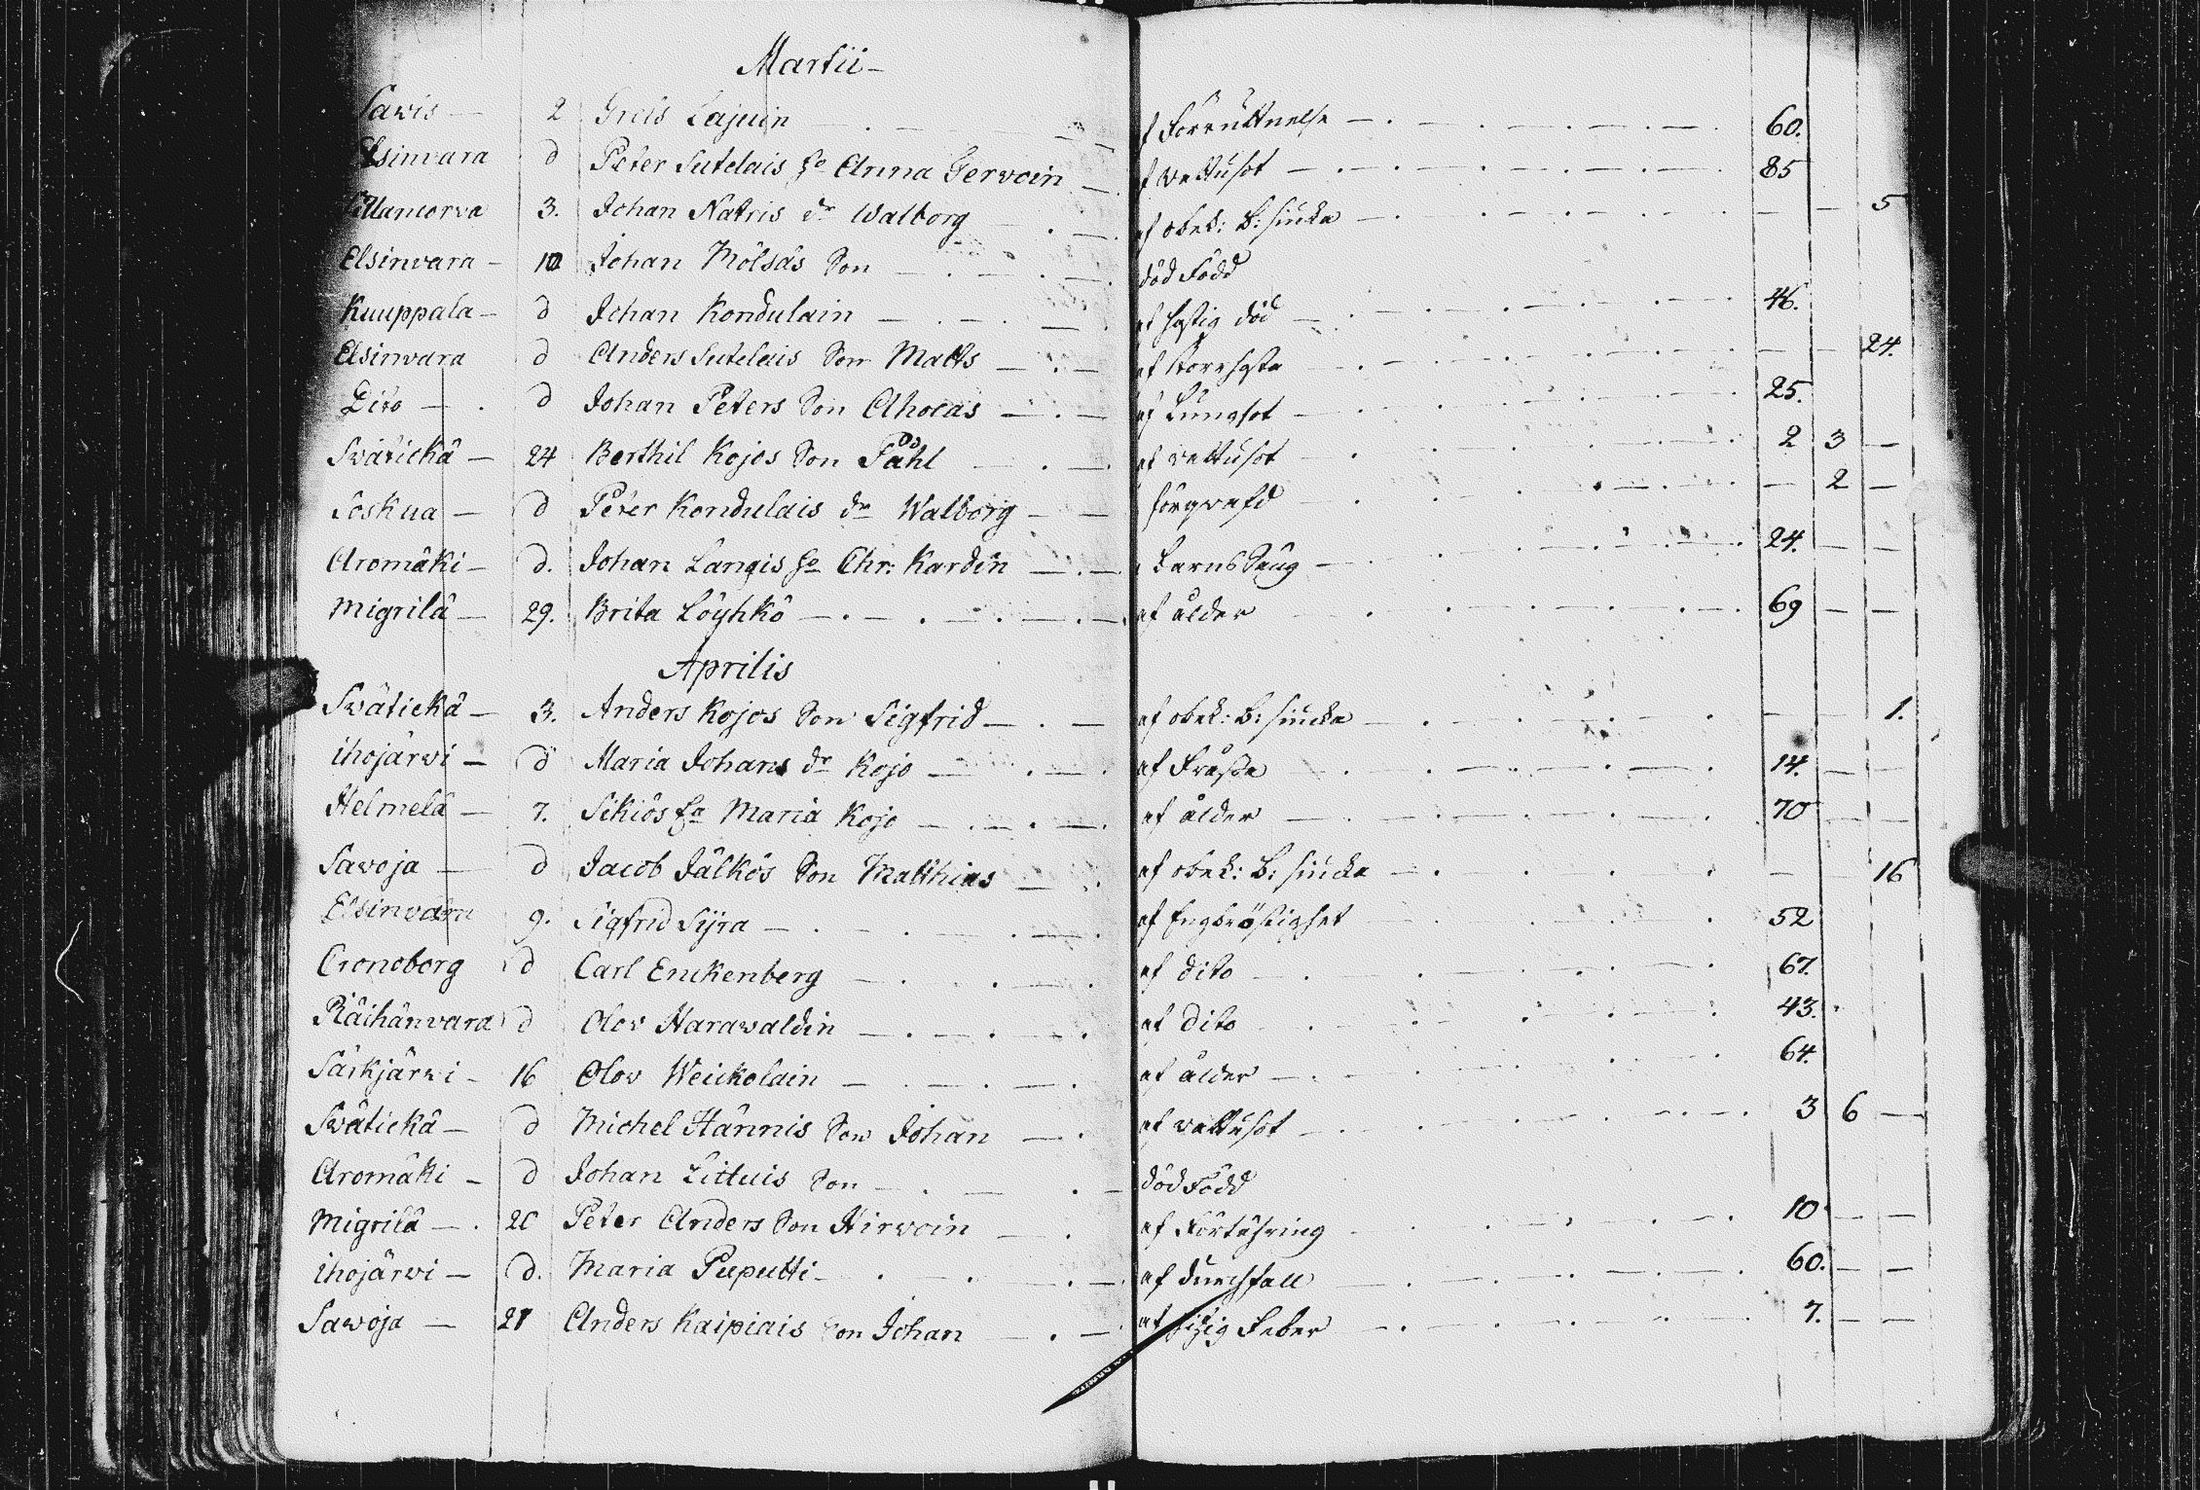 Martii
Sawis — 2 Grels Lajuin — af Förruttnelse — 60.
Elsinvara d Peter Sutelais ho Anna Hervoin — af wattusot — 85
Johan Natris dr Walborg — af obek: B: siuka — 5
Elsinvara — 10 Johan Mölsäs Son — död Född
Kuuppala — d Johan Kondulain — af hastig död — 46.
Elsinvara d Anders Sutelais Son Matts — af Torrhosta — 24.
Dito — d Johan Peters Son Ahocas — af Lungsot — 25.
Swätickä — 24 Berthil Kojos Son Påhl — af wattusot — 2 3 —
Soskua — d Peter Kondulais dr Walborg — förqwafd — 2 —
Aromäki — d. Johan Langis ho Chr: Kardin — i BarnsSäng — 24. — —
Migrilä — 29. Brita Löyhkö — af ålder — 69 — —
Aprilis
Swätická — 3. Anders Kojos Son Sigfrid — af obek: B: siucka — 1.
ihojärwi — d Maria Johans dr Kojo — af Fråssa — 14. — —
Helmelä — 7. Sikiös ho Maria Kojo — af ålder — 70 — —
Savoja — d Jacob Jälkös Son Matthias — af obek: B: siucka — 16
Elsinvara 9. Sigfrid Syra — af Engbröstighet 52
Cronoborg d Carl Enckenberg — af dito — 67.
Räihänvara d Olov Harawaldin — af dito — 43.
Särkjärwi — 16 Olov Weickolain — af ålder — 64.
Swätická — d Michel Hännis Son Johan — af wattusot — 3 6 —
Aromäki — d Johan Littuis Son — död Född
Migrilä — 20 Peter Anders Son Hirvoin — af Förtähring 10 — —
ihojärwi — d. Maria Puputti — af durchfall — 60. — —
Savoja — 27 Anders Kaipiais Son Johan — af hizig Feber — 7. — —